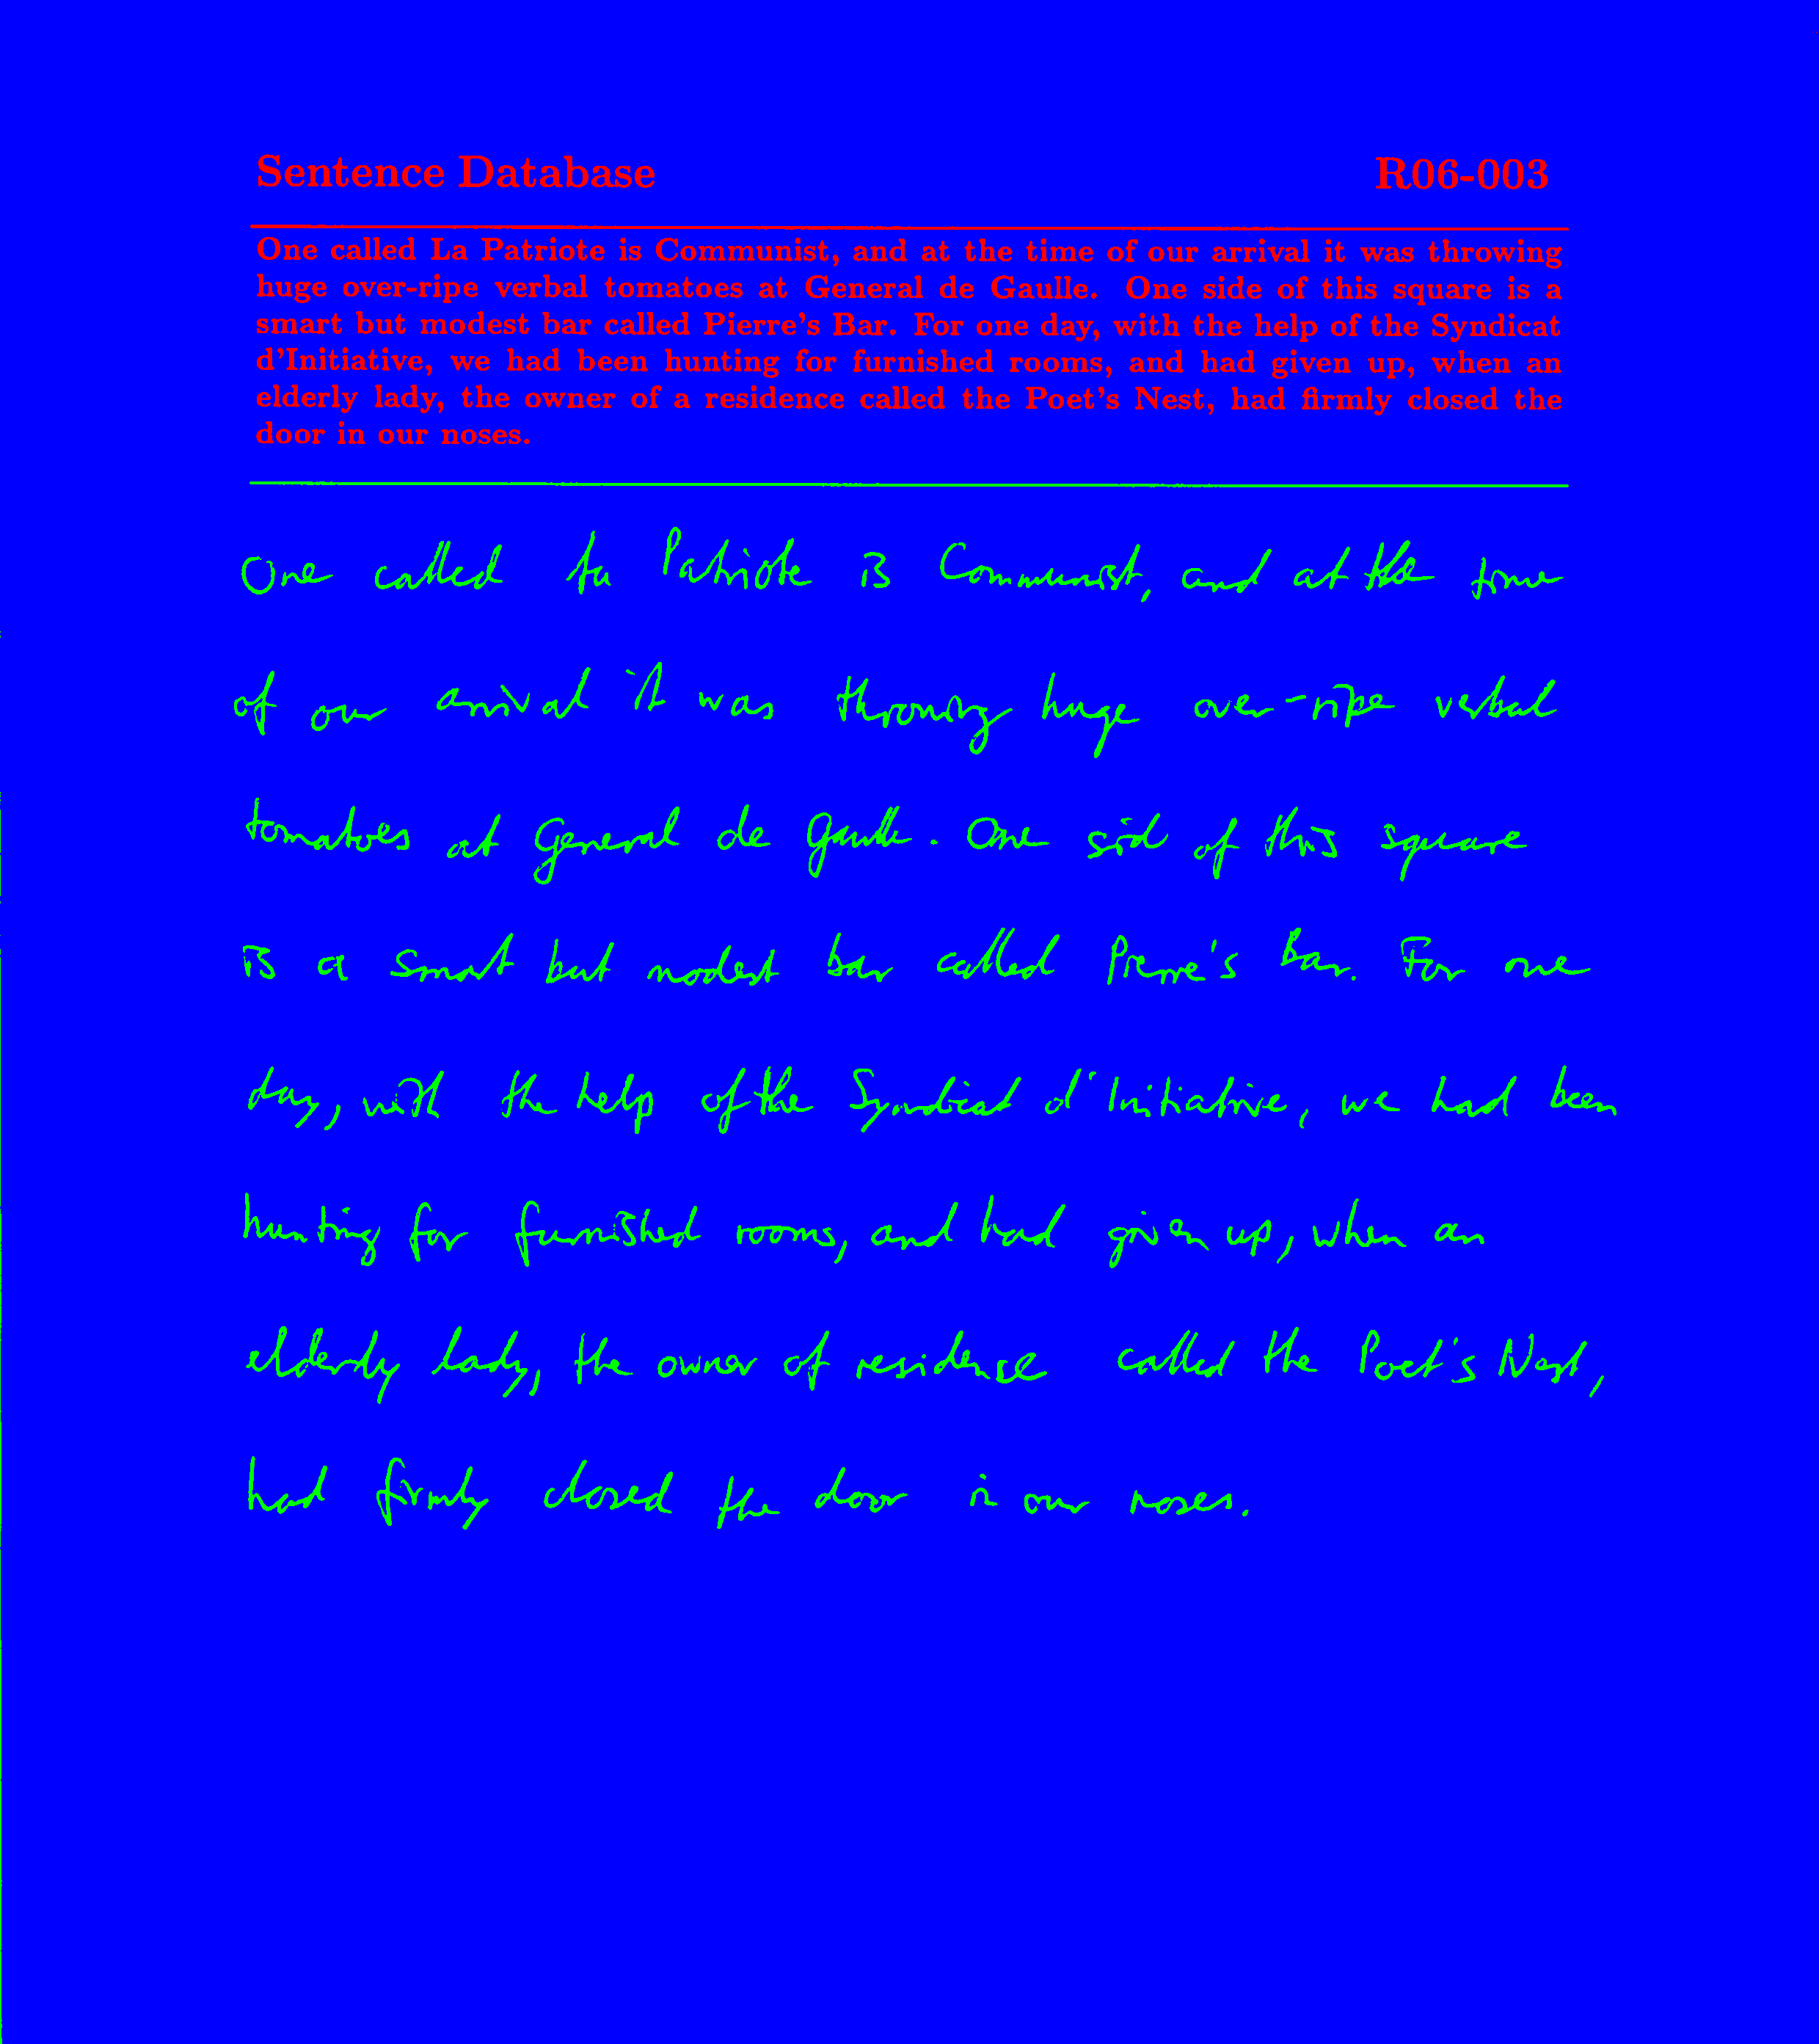 Sentence Database R06-003
One called La Patriote is Communist, and at the time of our arrival it was throwing
huge over-ripe verbal tomatoes at General de Gaulle. One side of this square is a
smart but modest bar called Pierre's Bar. For one day, with the help of the Syndicat
d'Initiative, we had been hunting for furnished rooms, and had given up, when an
elderly lady, the owner of a residence called the Poet's Nest, had firmly closed the
door in our noses.
One called La Patriote is Communist, and at the time
of our arrival it was throwing huge over-ripe verbal
tomatoes at General de Gaulle. One side of this square
is a smart but modest bar called Pierre's Bar. For one
day, with the help of the Syndicat d'Initiative, we had been
hunting for furnished rooms, and had given up, when an
elderly lady, the owner of residence called the Poet's Nest,
had firmly closed the door in our noses.